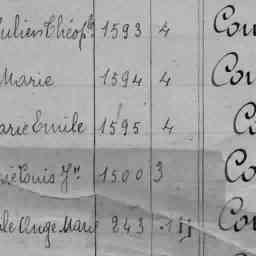 Juliens Théoph 1593 4 Cou
Marie 1594 4 Cou
arie Emile 1595 4 Co
Louis Jn 1500 3 Co
Ange Marie 243 Cou